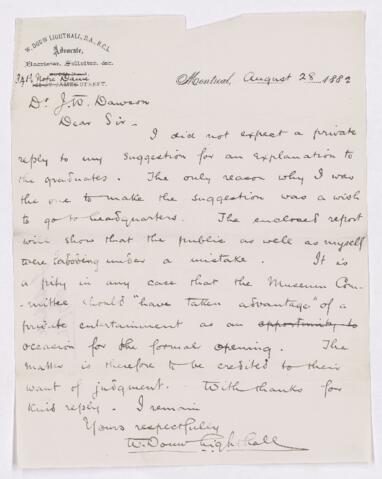 W. DOUW LIGHTHALL, B.A., B.C.L.
Advocate,
Barrister, Solicitor, &c.
Notre Dame
ST. JAMES STREET.
Montreal, August 28 1882
Dr J. W. Dawson
Dear Sir -
I did not expect a private
reply to my suggestion for an explanation to
the graduates. The only reason why I was
the one to make the suggestion was a wish
to go to headquarters. The enclosed report
will show that the public as well as myself
were labouring under a mistake. It is
a pity in any case that the Museum Com-
mittee should "have taken advantage" of a
private entertainment as an opportunity to
occasion for the formal opening. The
matter is therefore to be credited to their
want of judgment. With thanks for
kind reply. I remain
Yours respectfully
W. Douw Lighthall